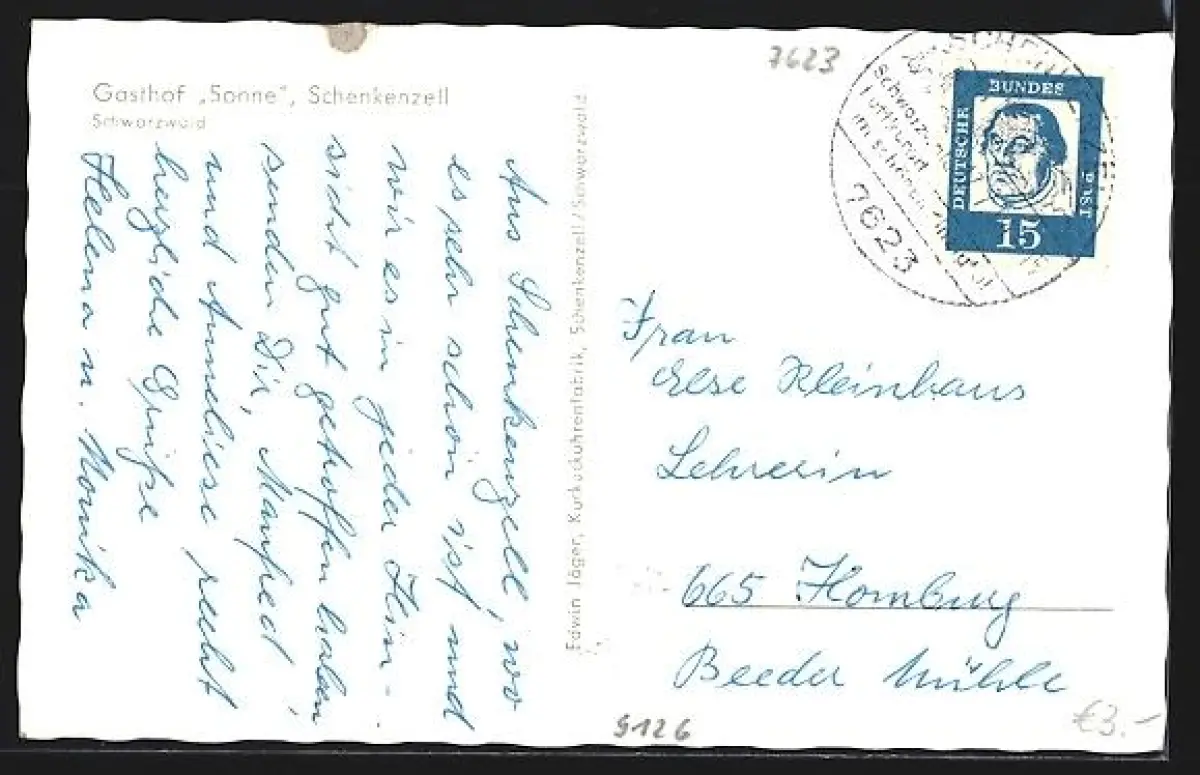 7623
Gasthof „Sonne“, Schenkenzell
Schwarzwald
Aus Schenkenzell, wo
es sehr schön ist und
wir es in jeder Hin-
sicht gut getroffen haben
senden Dir, Manfred
und Anneliese recht
herzliche Grüße
Helena u. Monika
Edwin Jäger, Kuckuckuhrenfabrik, Schenkenzell / Schwarzwald
7623
DEUTSCHE
BUNDES
POST
15
Frau
Else Kleinhans
Lehrerin
665 Homburg
Beeder Mühle
9126
€3.-